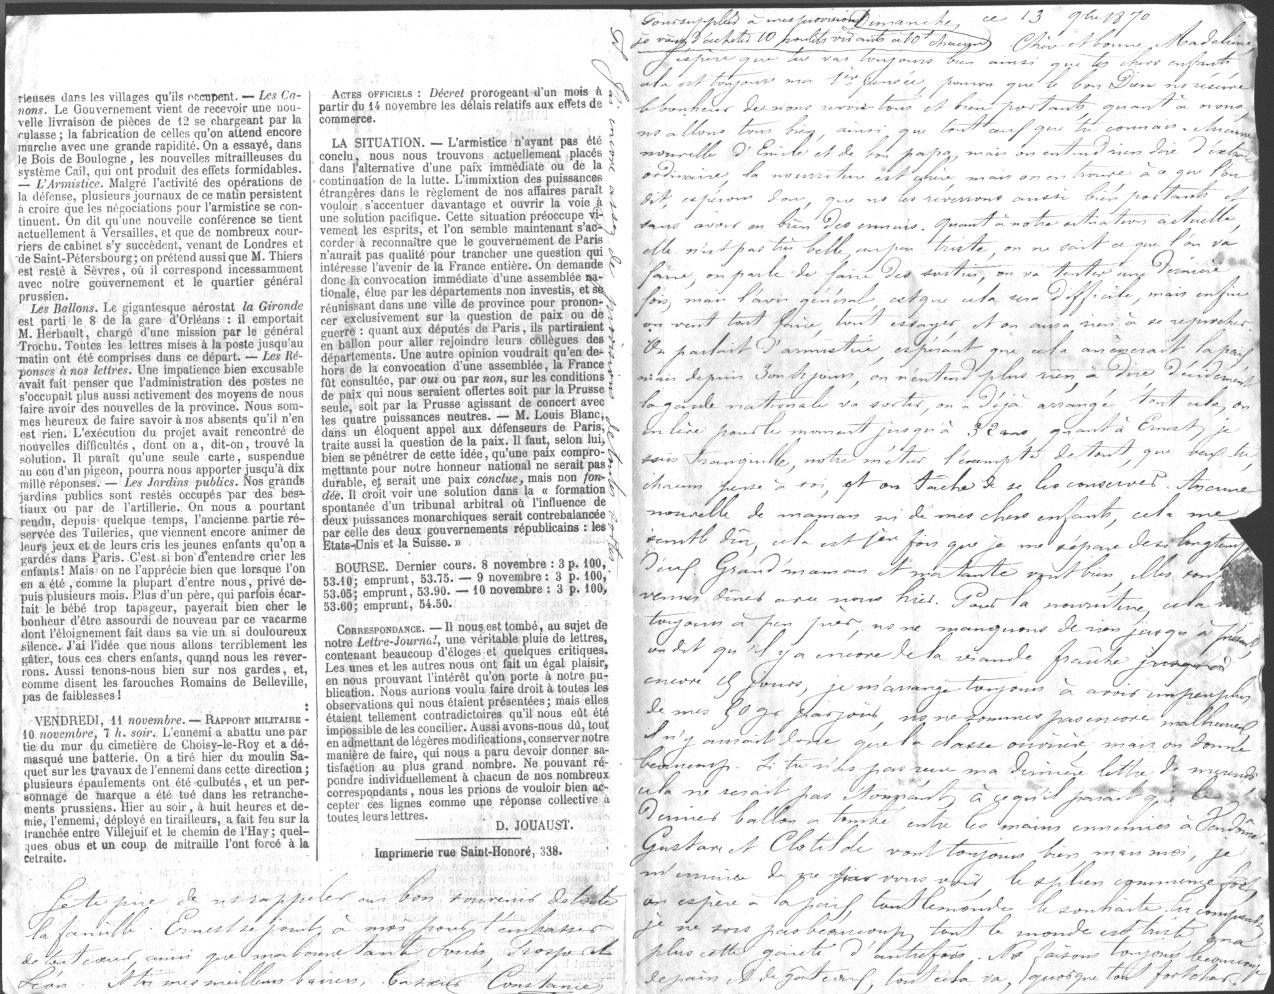 rieuses dans les villages qu'ils occupent. — Les Ca-
nons. Le Gouvernement vient de recevoir une nou-
velle livraison de pièces de 12 se chargeant par la
culasse ; la fabrication de celles qu'on attend encore
marche avec une grande rapidité. On a essayé, dans
le Bois de Boulogne, les nouvelles mitrailleuses du
système Cail, qui ont produit des effets formidables.
— L'Armistice. Malgré l'activité des opérations de
la défense, plusieurs journaux de ce matin persistent
à croire que les négociations pour l'armistice se con-
tinuent. On dit qu'une nouvelle conférence se tient
actuellement à Versailles, et que de nombreux cour-
riers de cabinet s'y succèdent, venant de Londres et
de Saint-Pétersbourg ; on prétend aussi que M. Thiers
est resté à Sèvres, où il correspond incessamment
avec notre gouvernement et le quartier général
prussien.
Les Ballons. Le gigantesque aérostat la Gironde
est parti le 8 de la gare d'Orléans : il emportait
M. Herbault, chargé d'une mission par le général
Trochu. Toutes les lettres mises à la poste jusqu'au
matin ont été comprises dans ce départ. — Les Ré-
ponses à nos lettres. Une impatience bien excusable
avait fait penser que l'administration des postes ne
s'occupait plus aussi activement des moyens de nous
faire avoir des nouvelles de la province. Nous som-
mes heureux de faire savoir à nos absents qu'il n'en
est rien. L'exécution du projet avait rencontré de
nouvelles difficultés, dont on a, dit-on, trouvé la
solution. Il paraît qu'une seule carte, suspendue
au cou d'un pigeon, pourra nous apporter jusqu'à dix
mille réponses. — Les Jardins publics. Nos grands
jardins publics sont restés occupés par des bes-
tiaux ou par de l'artillerie. On nous a pourtant
rendu, depuis quelque temps, l'ancienne partie ré-
servée des Tuileries, que viennent encore animer de
leurs jeux et de leurs cris les jeunes enfants qu'on a
gardés dans Paris. C'est si bon d'entendre crier les
enfants ! Mais on ne l'apprécie bien que lorsque l'on
en a été, comme la plupart d'entre nous, privé de-
puis plusieurs mois. Plus d'un père, qui parfois écar-
tait le bébé trop tapageur, payerait bien cher le
bonheur d'être assourdi de nouveau par ce vacarme
dont l'éloignement fait dans sa vie un si douloureux
silence. J'ai l'idée que nous allons terriblement les
gâter, tous ces chers enfants, quand nous les rever-
rons. Aussi tenons-nous bien sur nos gardes, et,
comme disent les farouches Romains de Belleville,
pas de faiblesses !
VENDREDI, 11 novembre. — RAPPORT MILITAIRE -
10 novembre, 7 h. soir. L'ennemi a abattu une par
tie du mur du cimetière de Choisy-le-Roy et a dé-
masqué une batterie. On a tiré hier du moulin Sa-
quet sur les travaux de l'ennemi dans cette direction ;
plusieurs épaulements ont été culbutés, et un per-
sonnage de marque a été tué dans les retranche-
ments prussiens. Hier au soir, à huit heures et de-
mie, l'ennemi, déployé en tirailleurs, a fait feu sur la
tranchée entre Villejuif et le chemin de l'Hay ; quel-
ques obus et un coup de mitraille l'ont forcé à la
retraite.
ACTES OFFICIELS : Décret prorogeant d'un mois à
partir du 14 novembre les délais relatifs aux effets de
commerce.
LA SITUATION. — L'armistice n'ayant pas été
conclu, nous nous trouvons actuellement placés
dans l'alternative d'une paix immédiate ou de la
continuation de la lutte. L'immixtion des puissances
étrangères dans le règlement de nos affaires paraît
vouloir s'accentuer davantage et ouvrir la voie à
une solution pacifique. Cette situation préoccupe vi-
vement les esprits, et l'on semble maintenant s'ac-
corder à reconnaître que le gouvernement de Paris
n'aurait pas qualité pour trancher une question qui
intéresse l'avenir de la France entière. On demande
donc la convocation immédiate d'une assemblée na-
tionale, élue par les départements non investis, et se
réunissant dans une ville de province pour pronon-
cer exclusivement sur la question de paix ou de
guerre : quant aux députés de Paris, ils partiraient
en ballon pour aller rejoindre leurs collègues des
départements. Une autre opinion voudrait qu'en de-
hors de la convocation d'une assemblée, la France
fût consultée, par oui ou par non, sur les conditions
de paix qui nous seraient offertes soit par la Prusse
seule, soit par la Prusse agissant de concert avec
les quatre puissances neutres. — M. Louis Blanc,
dans un éloquent appel aux défenseurs de Paris,
traite aussi la question de la paix. Il faut, selon lui,
bien se pénétrer de cette idée, qu'une paix compro-
mettante pour notre honneur national ne serait pas
durable, et serait une paix conclue, mais non fon-
dée. Il croit voir une solution dans la « formation
spontanée d'un tribunal arbitral où l'influence de
deux puissances monarchiques serait contrebalancée
par celle des deux gouvernements républicains : les
Etats-Unis et la Suisse. »
BOURSE. Dernier cours. 8 novembre : 3 p. 100,
53.10; emprunt, 53.75. — 9 novembre : 3 p. 100,
53.05; emprunt, 53.90. — 10 novembre : 3 p. 100,
53.60; emprunt, 54.50.
CORRESPONDANCE. — Il nous est tombé, au sujet de
notre Lettre-Journal, une véritable pluie de lettres,
contenant beaucoup d'éloges et quelques critiques.
Les unes et les autres nous ont fait un égal plaisir,
en nous prouvant l'intérêt qu'on porte à notre pu-
blication. Nous aurions voulu faire droit à toutes les
observations qui nous étaient présentées ; mais elles
étaient tellement contradictoires qu'il nous eût été
impossible de les concilier. Aussi avons-nous dû, tout
en admettant de légères modifications, conserver notre
manière de faire, qui nous a paru devoir donner sa-
tisfaction au plus grand nombre. Ne pouvant ré-
pondre individuellement à chacun de nos nombreux
correspondants, nous les prions de vouloir bien ac-
cepter ces lignes comme une réponse collective à
toutes leurs lettres.
D. JOUAUST.
Imprimerie rue Saint-Honoré, 338.
Je te prie de ns rappeler au bon souvenir de toute
la famille. Ernest se joint à moi pour t'embrasser
de tout cœur, ainsi que ma bonne tante Louis, Prosper et
Léon. Mes meilleurs baisers. Constance
Pour suppléer à mes provisions Dimanche, ce 13 9bre 1870
je viens d'acheter 10 poulets vivants à 10f chacun
Chère et bonne Madeleine,
J'espère que tu vas toujours bien ainsi que tes chers enfants
cela est toujours ma 1ère pensée, pourvu que le bon Dieu ns réserve
le bonheur de nous revoir tous et bien portants quant à nous,
ns allons tous bien, ainsi que tout ceux que tu connais. Aucune
nouvelle d'Emile et de bon papa,
dit, espérons donc, que ns les reverrons aussi bien portants et
sans avoir eu bien des ennuis. Quant à notre situation actuelle,
elle n'est pas très belle un peu triste, on ne sait ce que l'on va
faire, on parle de faire des sorties, on va tenter une dernière
fois, mais l'avis général est que cela sera difficile, mais enfin
on veut tout faire, tout essayer, et on aura rien à se reprocher.
On parlait d'armistice, espérant que cela amènerait la paix
mais depuis 3 ou 4 jours, on n'entend plus rien, à dire
la garde nationale va sortir, on a déjà arrangé tout cela, on
enlève pour le moment jusqu'à 32 ans, quant à Ernest je
suis tranquille, notre métier l'exempte de tout, que veux-tu
chacun pense à soi, et on tâche de se les conserver. Aucune
nouvelle de maman ni de mes chers enfants, cela me
semble dur, cela est la 1ère fois que je me sépare de si longtemps
d'eux. Grand'maman et ma tante vont bien, elles sont
venues dîner avec nous hier. Pour la nourriture, cela va
toujours à peu près, ns ne manquons de rien jusqu'à présent,
on dit qu'il y a encore de la viande fraîche
encore 15 jours, je m'arrange toujours à avoir un peu plus
de mes 50 gr par jour, ns ne sommes pas encore malheureux,
il n'y aurait donc que la classe ouvrière mais on donne
beaucoup. Si tu n'as pas reçu ma dernière lettre
cela ne serait pas étonnant, à ce qu'il paraît que le
dernier ballon a tombé entre les mains ennemies à
Gustave et Clotilde vont toujours bien mais moi, je
m'ennuie de ne pas vous voir, le spleen commence
on espère à la paix, tout le monde le souhaite, tu comprends
je ne sors pas beaucoup, tout le monde est triste, on n'a
plus cette gaieté d'autrefois. Ns faisons toujours beaucoup
de pain et de gâteaux, tout cela va, quoique tout